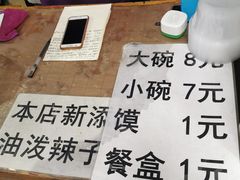 大碗 8元
小碗 7元
馍 1元
餐盒 1元
本店新添
油泼辣子